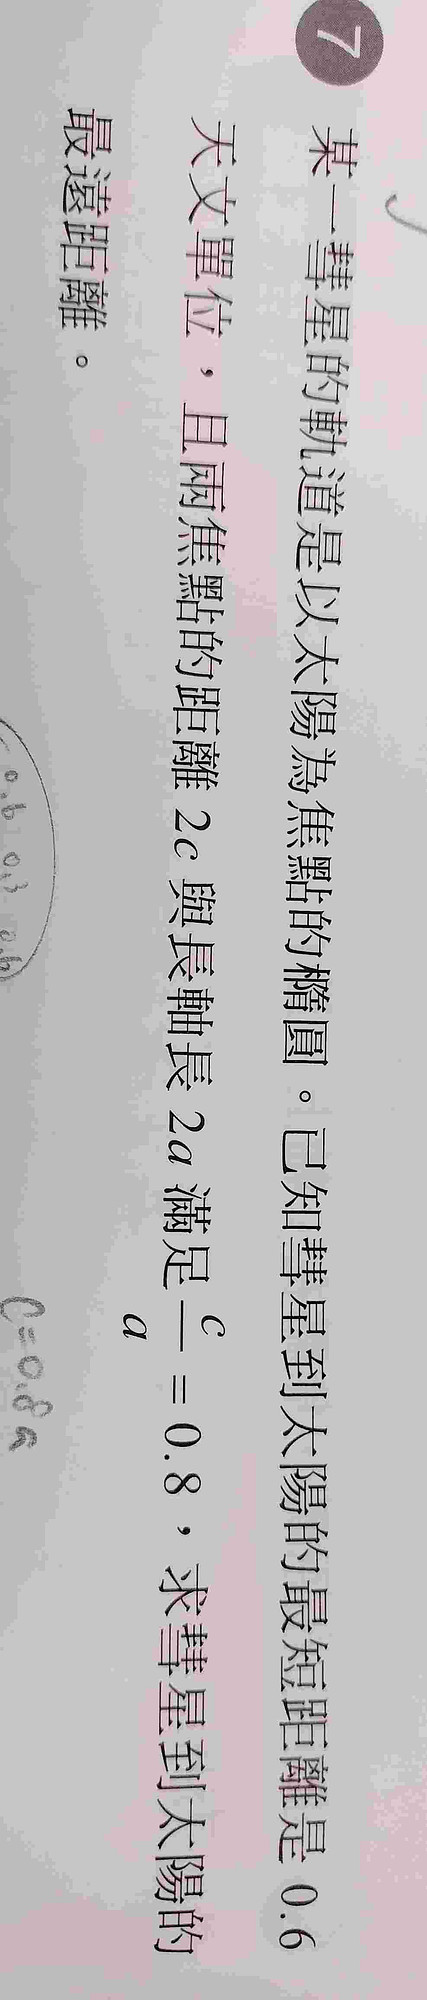 7 某一彗星的軌道是以太陽為焦點的橢圓。已知彗星到太陽的最短距離是 0.6
天文單位，且兩焦點的距離 2c 與長軸長 2a 滿足 c/a = 0.8，求彗星到太陽的
最遠距離。
c=0.8a